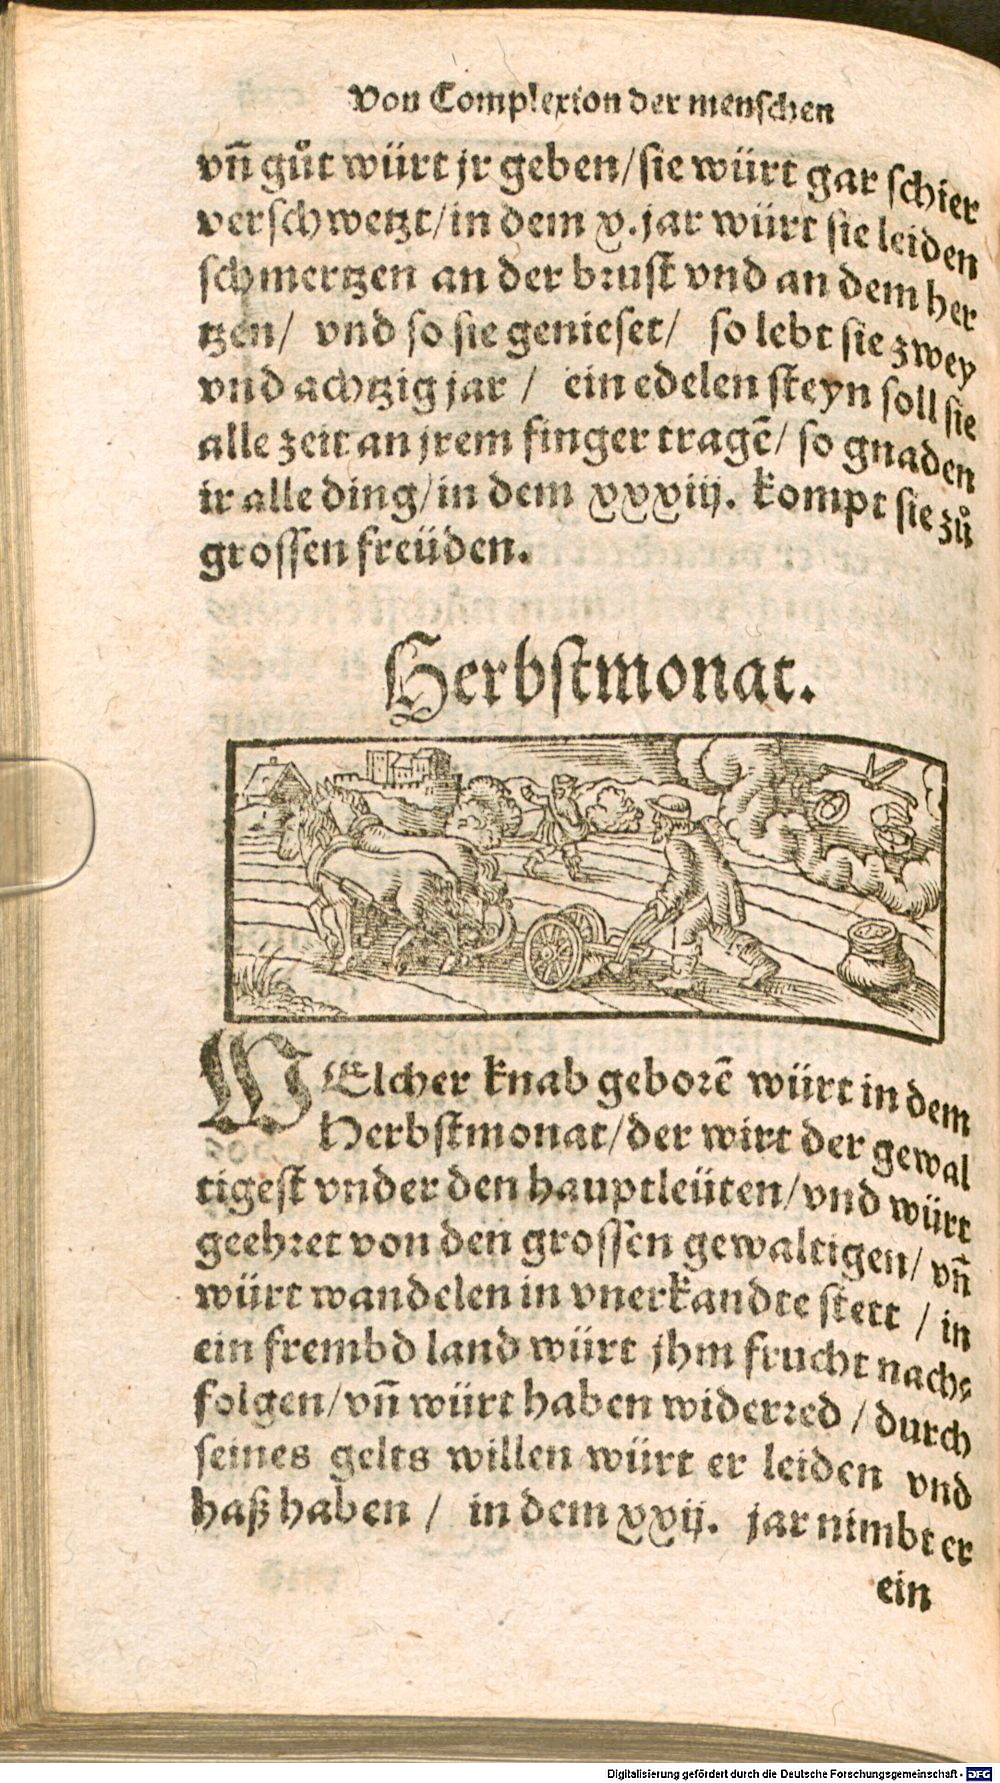 Von Complexion der menschen
vñ gůt würt jr geben/sie würt gar schier
verschwetzt/in dem x.jar würt sie leiden
schmertzen an der brust vnd an dem her
tzen/ vnd so sie genieset/ so lebt sie zwey
vnd achtzig jar / ein edelen steyn soll sie
alle zeit an jrem finger tragẽ/ so gnaden
ir alle ding/in dem xxxiij. kompt sie zů
grossen freüden.
Herbstmonat.
WElcher knab geborẽ würt in dem
Herbstmonat/der wirt der gewal
tigest vnder den hauptleüten/vnd würt
geehret von den grossen gewaltigen/ vñ
würt wandelen in vnerkandte stett / in
ein frembd land würt jhm frucht nach⸗
folgen/vñ würt haben widerred / durch
seines gelts willen würt er leiden vnd
haß haben / in dem xxij. jar nimbt er
ein
Digitalisierung gefördert durch die Deutsche Forschungsgemeinschaft - DFG